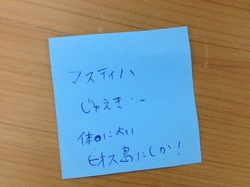 マスティハ
じゅえき…
体によい
ヒオス島にしか！